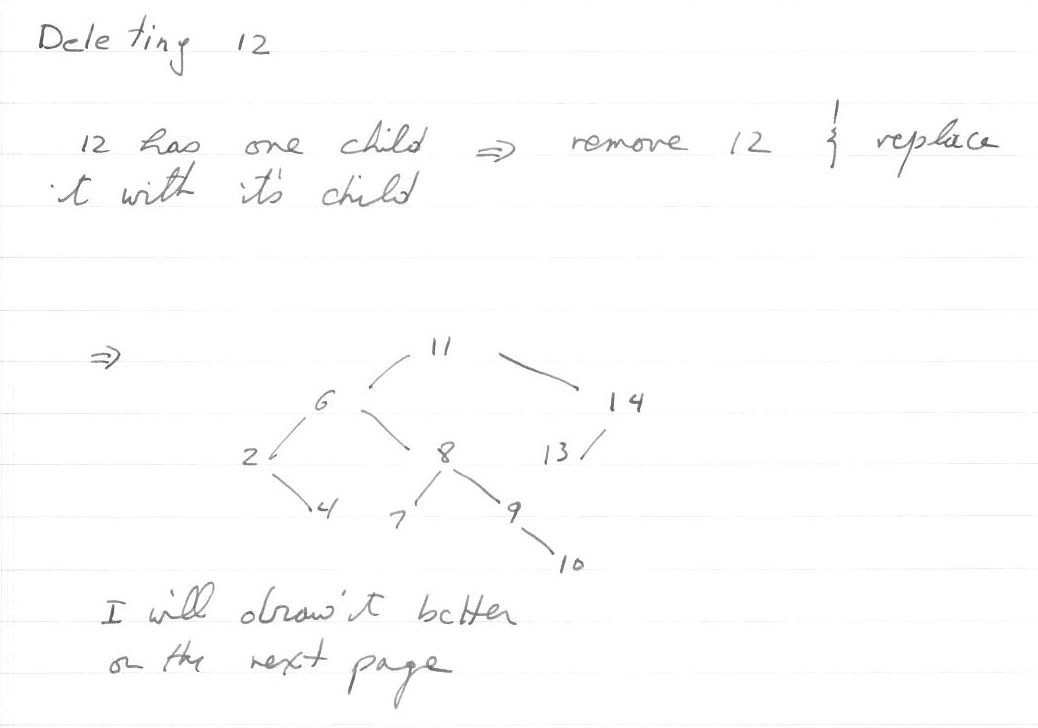 Deleting 12
12 has one child ⇒ remove 12 & replace
it with it's child
⇒ 11
6 14
2 8 13
4 7 9
10
I will draw it better
on the next page